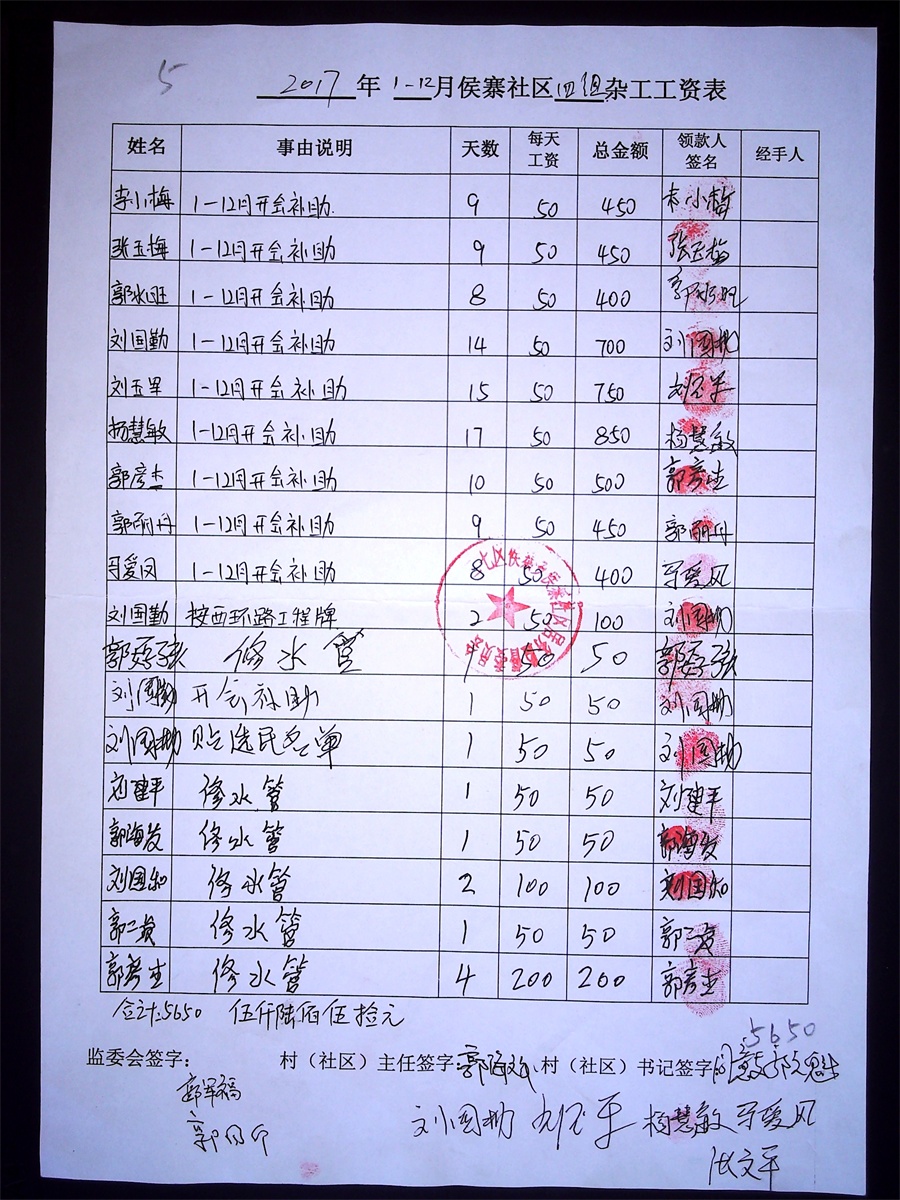 5
2017 年 1-12月侯寨社区四组杂工工资表
姓名 事由说明 天数 每天工资 总金额 领款人签名 经手人
李小梅 1-12月开会补助. 9 50 450 李小梅
张玉梅 1-12月开会补助 9 50 450 张玉梅
郭水旺 1-12月开会补助 8 50 400 郭水旺
刘国勤 1-12月开会补助 14 50 700 刘国勤
刘玉平 1-12月开会补助 15 50 750 刘玉平
杨慧敏 1-12月开会补助 17 50 850 杨慧敏
郭彦杰 1-12月开会补助 10 50 500 郭彦杰
郭丽丹 1-12月开会补助 9 50 450 郭丽丹
爱凤 1-12月开会补助 8 50 400 爱凤
刘国勤 按西环路工程牌 2 50 100 刘国勤
郭孩 修水管 1 50 50 郭孩
刘国勤 开会补助 1 50 50 刘国勤
刘国勤 贴选民名单 1 50 50 刘国勤
刘建平 修水管 1 50 50 刘建平
郭海发 修水管 1 50 50 郭海发
刘国知 修水管 2 100 100 刘国知
郭二 修水管 1 50 50 郭二
郭彦杰 修水管 4 200 200 郭彦杰
合计:5650 伍仟陆佰伍拾元
5650
监委会签字: 村（社区）主任签字: 村（社区）书记签字: 同意 郭文魁
郭军福
刘国勤 刘玉平 杨慧敏 爱凤
郭
张文平